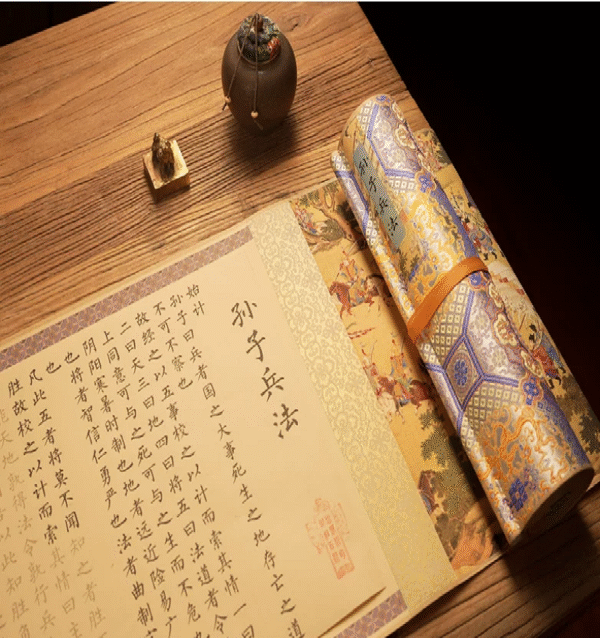 孙子兵法
孙子兵法
始计
孙子曰兵者国之大事死生之地存亡之道
不可不察也
故经之以五事校之以计而索其情一曰
二曰天三曰地四曰将五曰法道者令
上同意可与之死可与之生而不危
阴阳寒暑时制也地者远近险易广
也将者智信仁勇严也法者曲制
也
凡此五者将莫不闻知之者胜
胜故校之以计而索其情曰主
天地孰得法令孰行兵
以此知胜